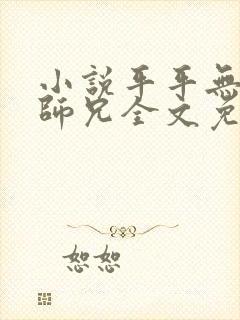 小說平平無
師兄全文免
恕恕